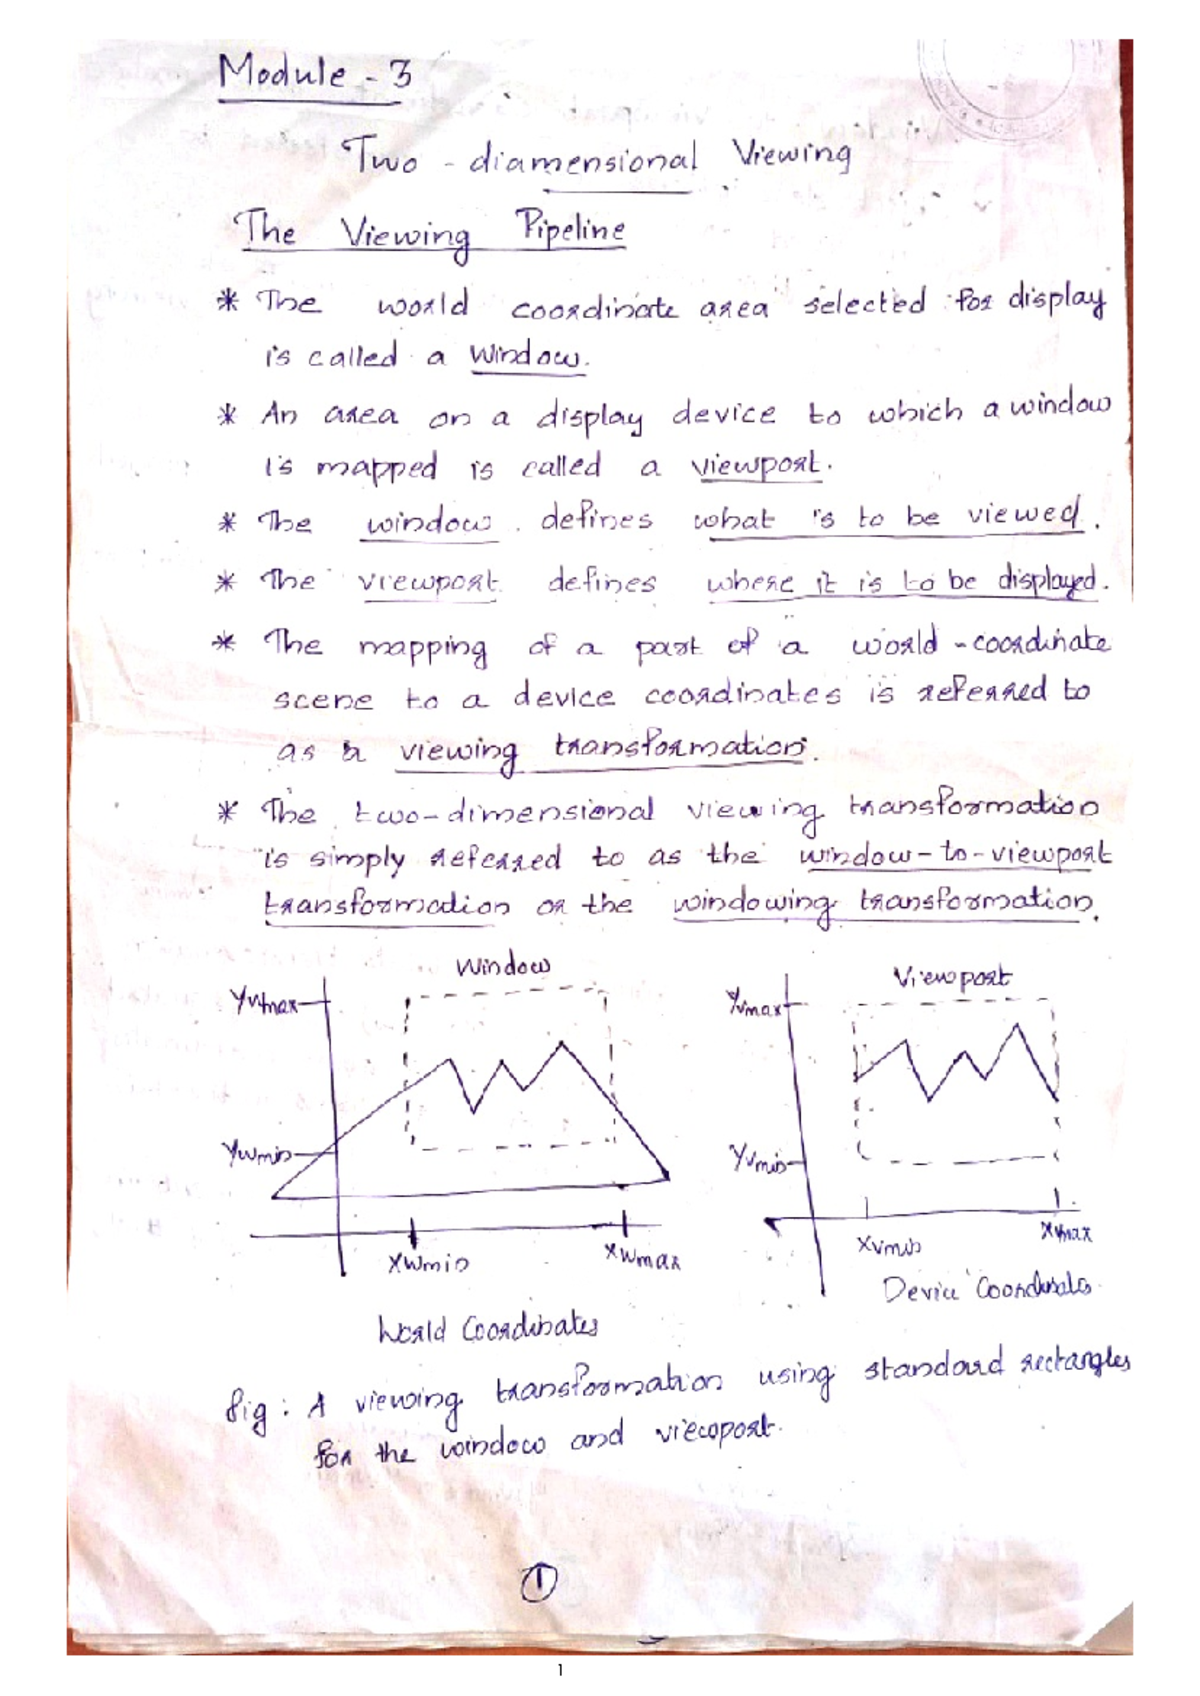 Module - 3
Two - diamensional Viewing
The Viewing Pipeline
* The world coordinate area selected for display
is called a window.
* An area on a display device to which a window
is mapped is called a viewport.
* The window defines what is to be viewed.
* The viewport defines where it is to be displayed.
* The mapping of a part of a world-coordinate
scene to a device coordinates is referred to
as a viewing transformation.
* The two-dimensional viewing transformation
is simply referred to as the window-to-viewport
transformation or the windowing transformation.
Window
Viewport
Ywmax
Yvmax
Ywmin
Yvmin
Xwmin
Xwmax
Xvmin
Xvmax
World Coordinates
Device Coordinates
fig: A viewing transformation using standard rectangles
for the window and viewport.
1
1